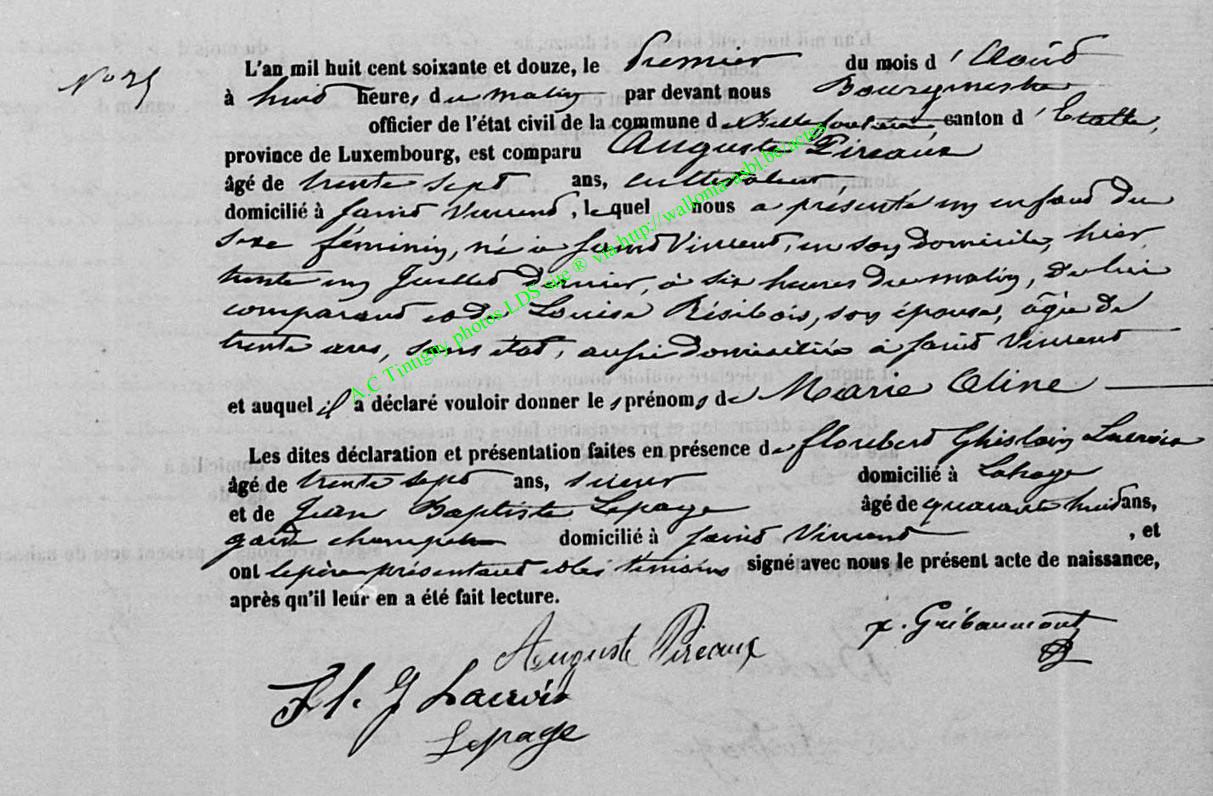 N° 25
L'an mil huit cent soixante et douze, le Premier du mois d'Août
à huit heures du matin par devant nous Bourgmestre
officier de l'état civil de la commune de Bellefontaine, canton d'Etalle,
province de Luxembourg, est comparu Auguste Pireaux
âgé de trente sept ans, cultivateur
domicilié à Saint Vincent, lequel nous a présenté un enfant du
sexe féminin, né à Saint Vincent, en son domicile, hier
trente un Juillet dernier, à six heures du matin, de lui
comparant et de Louise Résibois, son épouse, âgée de
trente ans, sans état, aussi domiciliée à Saint Vincent
et auquel il a déclaré vouloir donner les prénoms de Marie Aline
Les dites déclaration et présentation faites en présence de Floribert Ghislain Lacroix
âgé de trente sept ans, domicilié à Lahage
et de Jean Baptiste Lepage âgé de quarante huit ans,
garde champêtre domicilié à Saint Vincent, et
ont le père présentant et les témoins signé avec nous le présent acte de naissance,
après qu'il leur en a été fait lecture.
Auguste Pireaux
x. Gribaumont
Fl. G Lacroix
Lepage
A.C Tintigny photos LDS site ® via http://wallonia-asbl.be/actes